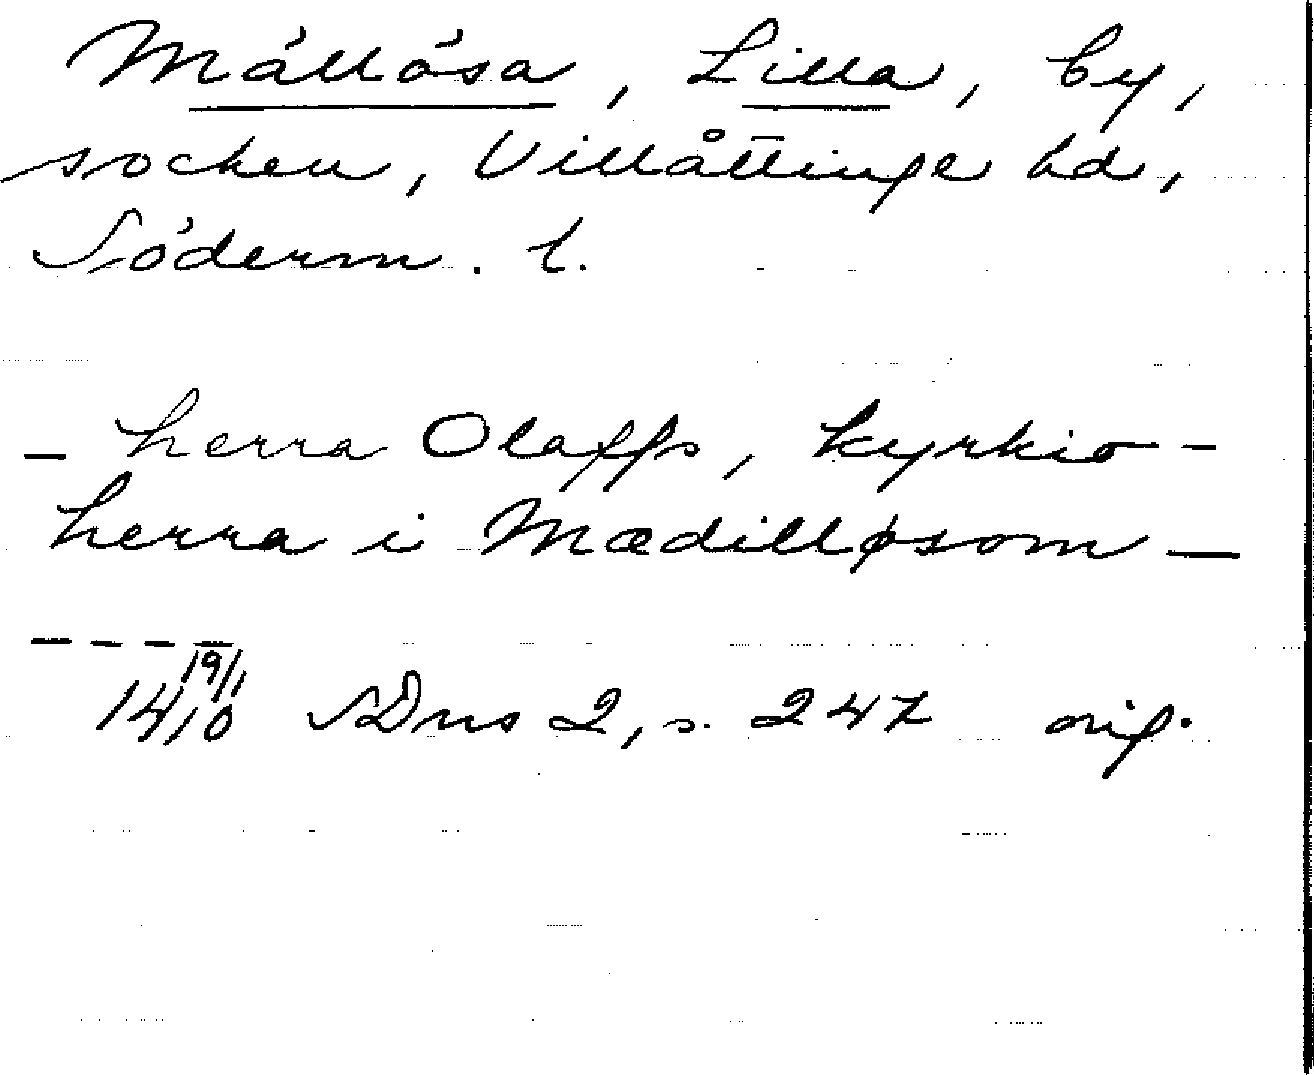 Mällösa, Lilla, by,
socken, Villåttinge hd,
Söderm. l.
- herra Olaffs, kyrkio-
herra i Mædilløsom -
- - - -
19/11
1410 SDns 2, s. 247 orig.